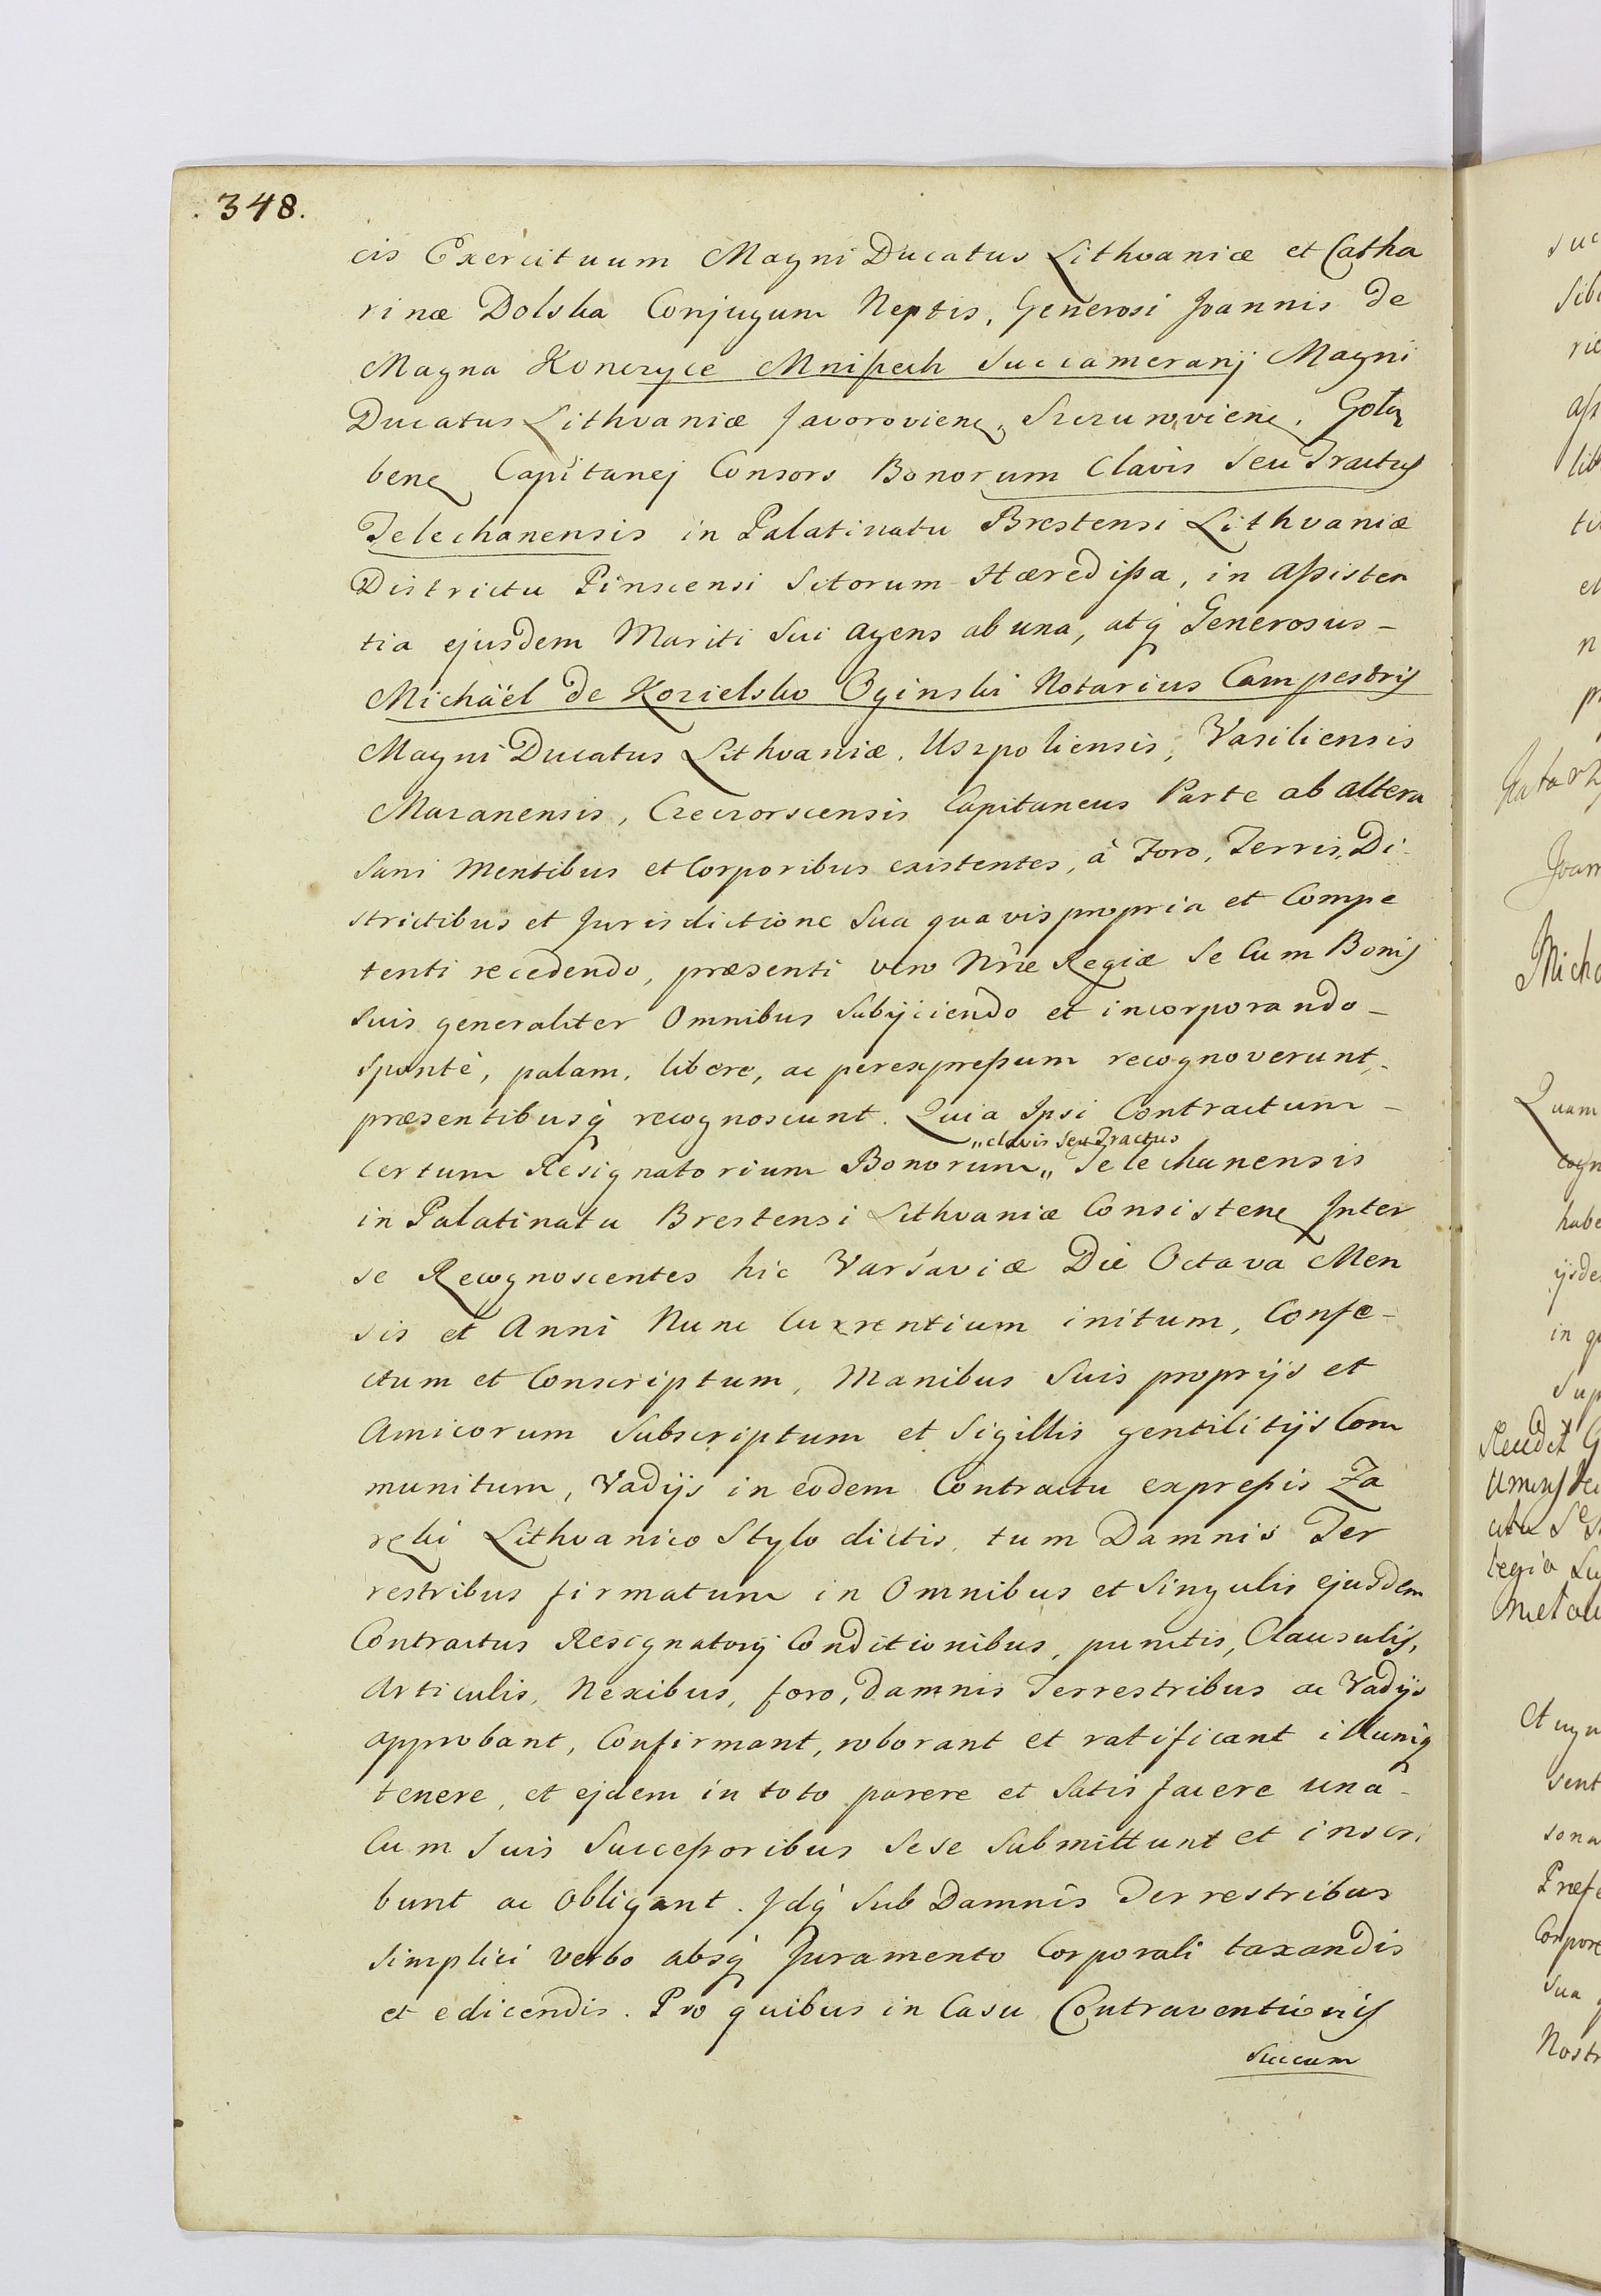 . 348.
cis Exercituum Magni Ducatus Lithvaniæ et Catha
rinæ Dolska Conjugum Neptis, Generosi Joannis de
Magna Konczyce Mniszech Succameranij Magni
Ducatus Lithvaniæ Javoroviens, Szczuroviens, Golu
bens Capitanej Consors Bonorum Clavis Seu Tractus
Telechanensis in Palatinatu Brestensi Lithvaniæ
Districtu Pinscensi Sitorum Hæredissa, in assisten
tia ejusdem Mariti Sui agens ab una, atq Generosus –
Michaël de Kozielsko Oginski Notarius Campestris
Magni Ducatus Lithvaniæ, Uszpoliensis, Vasiliensis
Mazanensis, Czeczorscensis Capitaneus Parte ab altera
Sani Mentibus et Corporibus existentes, à Foro, Terris, Di-
strictibus et Jurisdictione Sua quavis propria et Compe
tenti recedendo, præsenti vero Nr̃æ Regiæ Se Cum Bonis
Suis generaliter Omnibus Subijciendo et incorporando –
Spontè, palam, libere, ac per expressum recognoverunt,
præsentibusq recognoscunt. Quia Ipsi Contractum –
„clavis Seu Tractus
Certum Resignatorium Bonorum „ Telechanensis
in Palatinatu Brestensi Lithvaniæ Consistens Inter
se Recognoscentes hic Varsaviæ Die Octava Men
sis et Anni Nunc Currentium initum, Confe-
ctum et Conscriptum, Manibus Suis proprijs et
Amicorum Subscriptum et Sigillis gentilitijs Com
munitum, Vadijs in eodem Contractu expressis Za
ręki Lithvanico Stylo dictis, tum Damnis Ter
restribus firmatum in Omnibus et Singulis ejusdem
Contractus Resignatorij Conditionibus, punctis, Clausulis,
Articulis, Nexibus, foro, damnis Terrestribus ac Vadijs
approbant, Confirmant, roborant et ratificant illumq
tenere, et ejdem in toto parere et Satisfacere una –
Cum Suis Successoribus Sese Submittunt et inscri
bunt ac Obligant. Idq Sub Damnis Terrestribus
Simplici verbo absq Juramento Corporali taxandis
et edicendis. Pro quibus in Casu Contraventionis
Succum